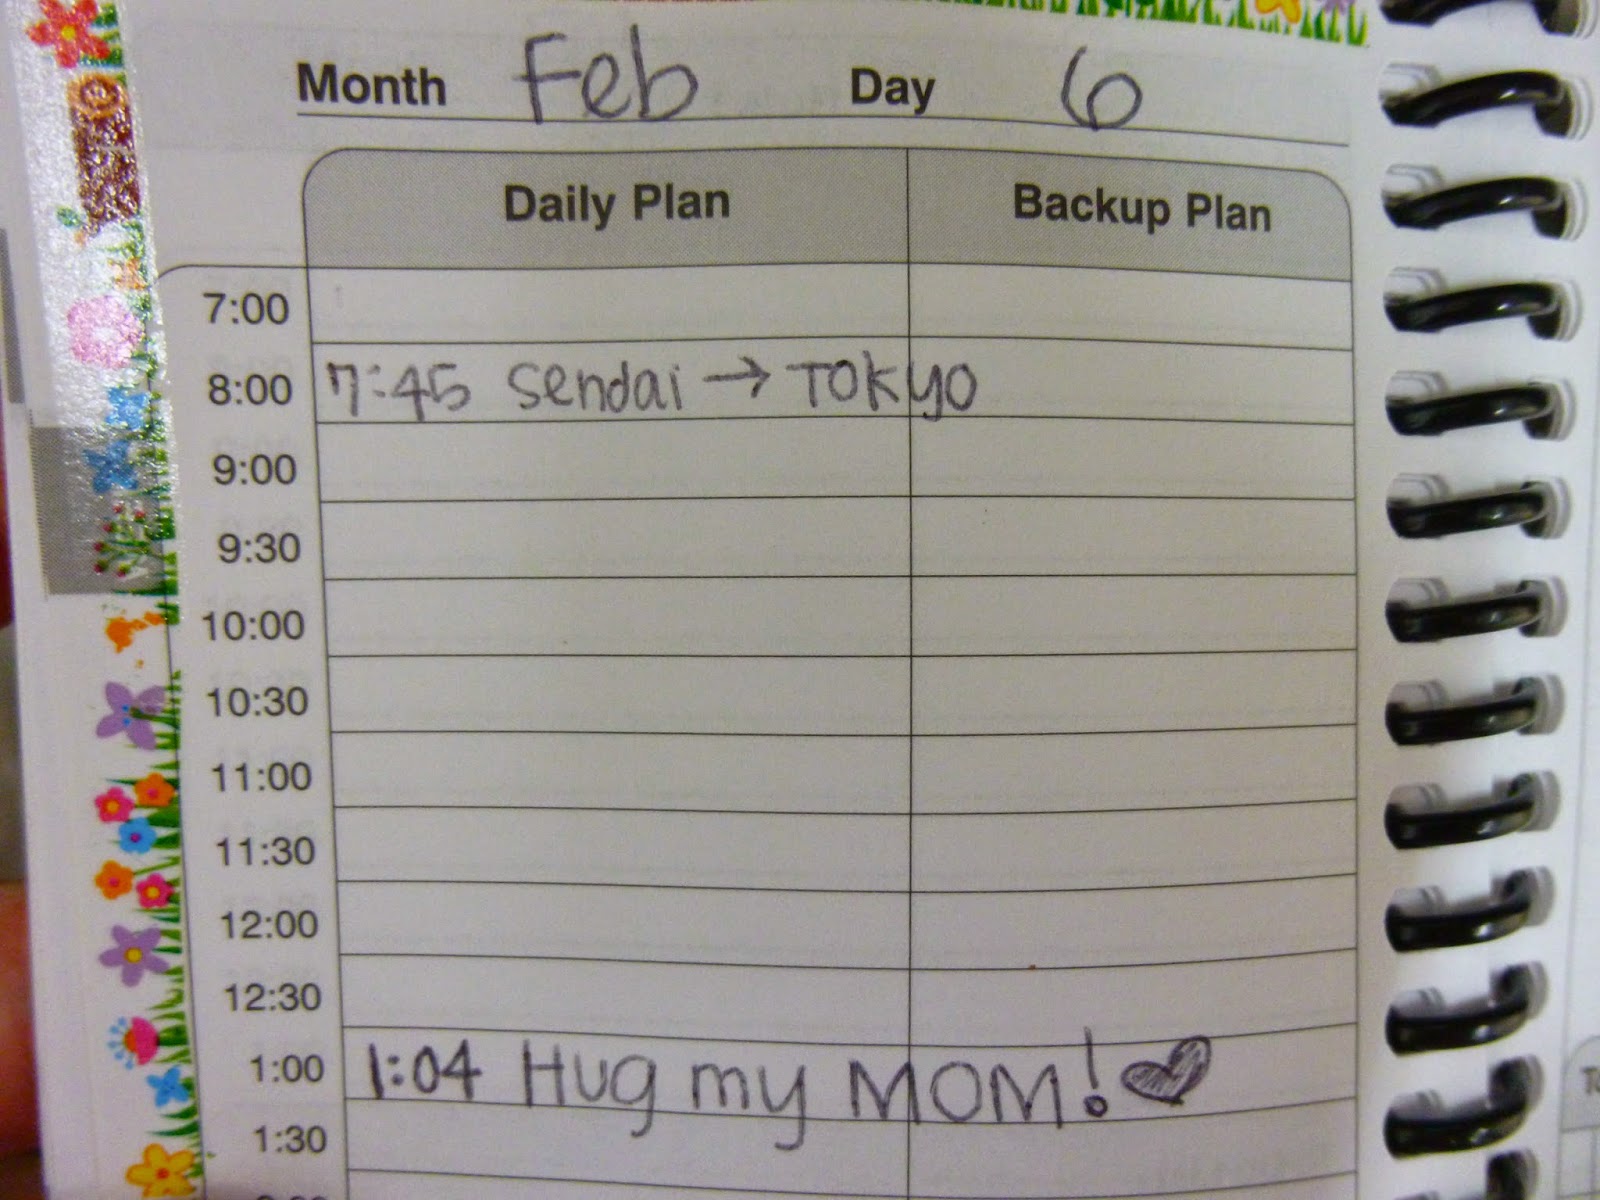 Month Feb Day 6
Daily Plan Backup Plan
7:00
8:00 7:45 Sendai → TOKyo
9:00
9:30
10:00
10:30
11:00
11:30
12:00
12:30
1:00 1:04 Hug my MOM! ♥
1:30